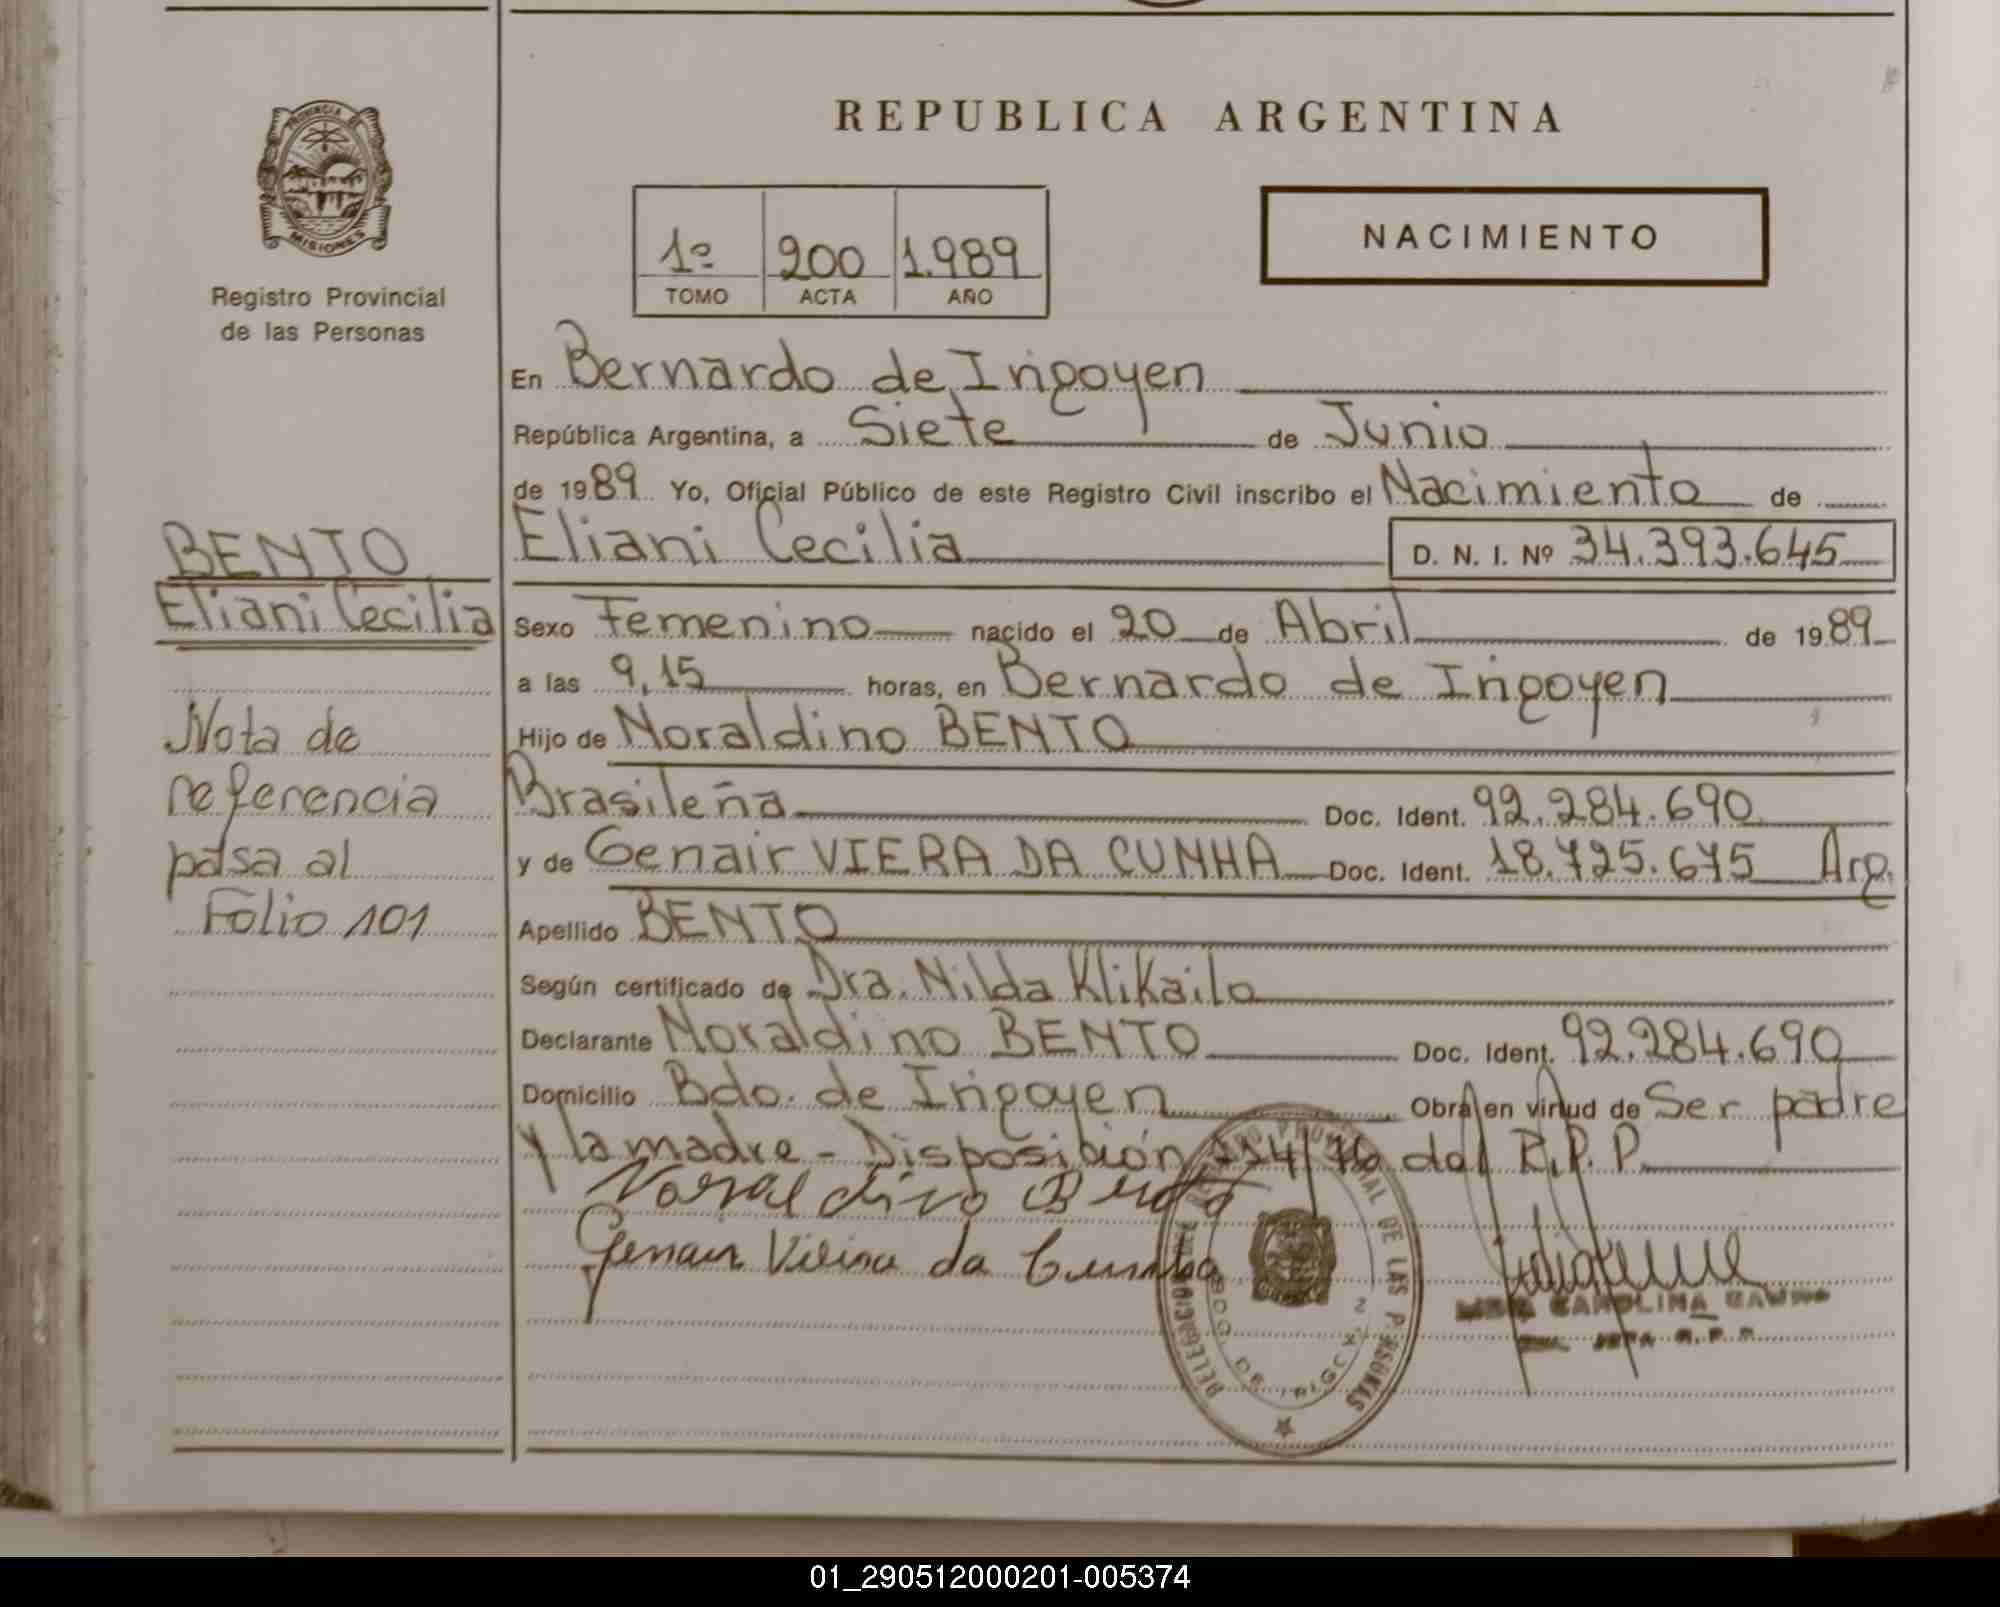 REPUBLICA ARGENTINA
PROVINCIA DE
MISIONES
Registro Provincial
de las Personas
1º 200 1.989
TOMO ACTA AÑO
NACIMIENTO
En Bernardo de Irigoyen
República Argentina, a Siete de Junio
de 1989 Yo, Oficial Público de este Registro Civil inscribo el Nacimiento de
Eliani Cecilia D. N. I. Nº 34.393.645
Sexo Femenino nacido el 20 de Abril de 1989
a las 9,15 horas, en Bernardo de Irigoyen
Hijo de Noraldino BENTO
Brasileña Doc. Ident. 92.284.690
y de Genair VIERA DA CUNHA Doc. Ident. 18.725.675 Arg.
Apellido BENTO
Según certificado de Dra. Nilda Klikailo
Declarante Noraldino BENTO Doc. Ident. 92.284.690
Domicilio Bdo. de Irigoyen Obra en virtud de Ser padre
y la madre - Disposición 114/76 del R.P.P.
Noraldino Bento
Genair Vieira da Cunha
BENTO
Eliani Cecilia
Nota de
referencia
pasa al
Folio 101
PROVINCIAL DE LAS PERSONAS
BDO. DE IRIGOYEN
CAROLINA
R.P.P.
01_290512000201-005374